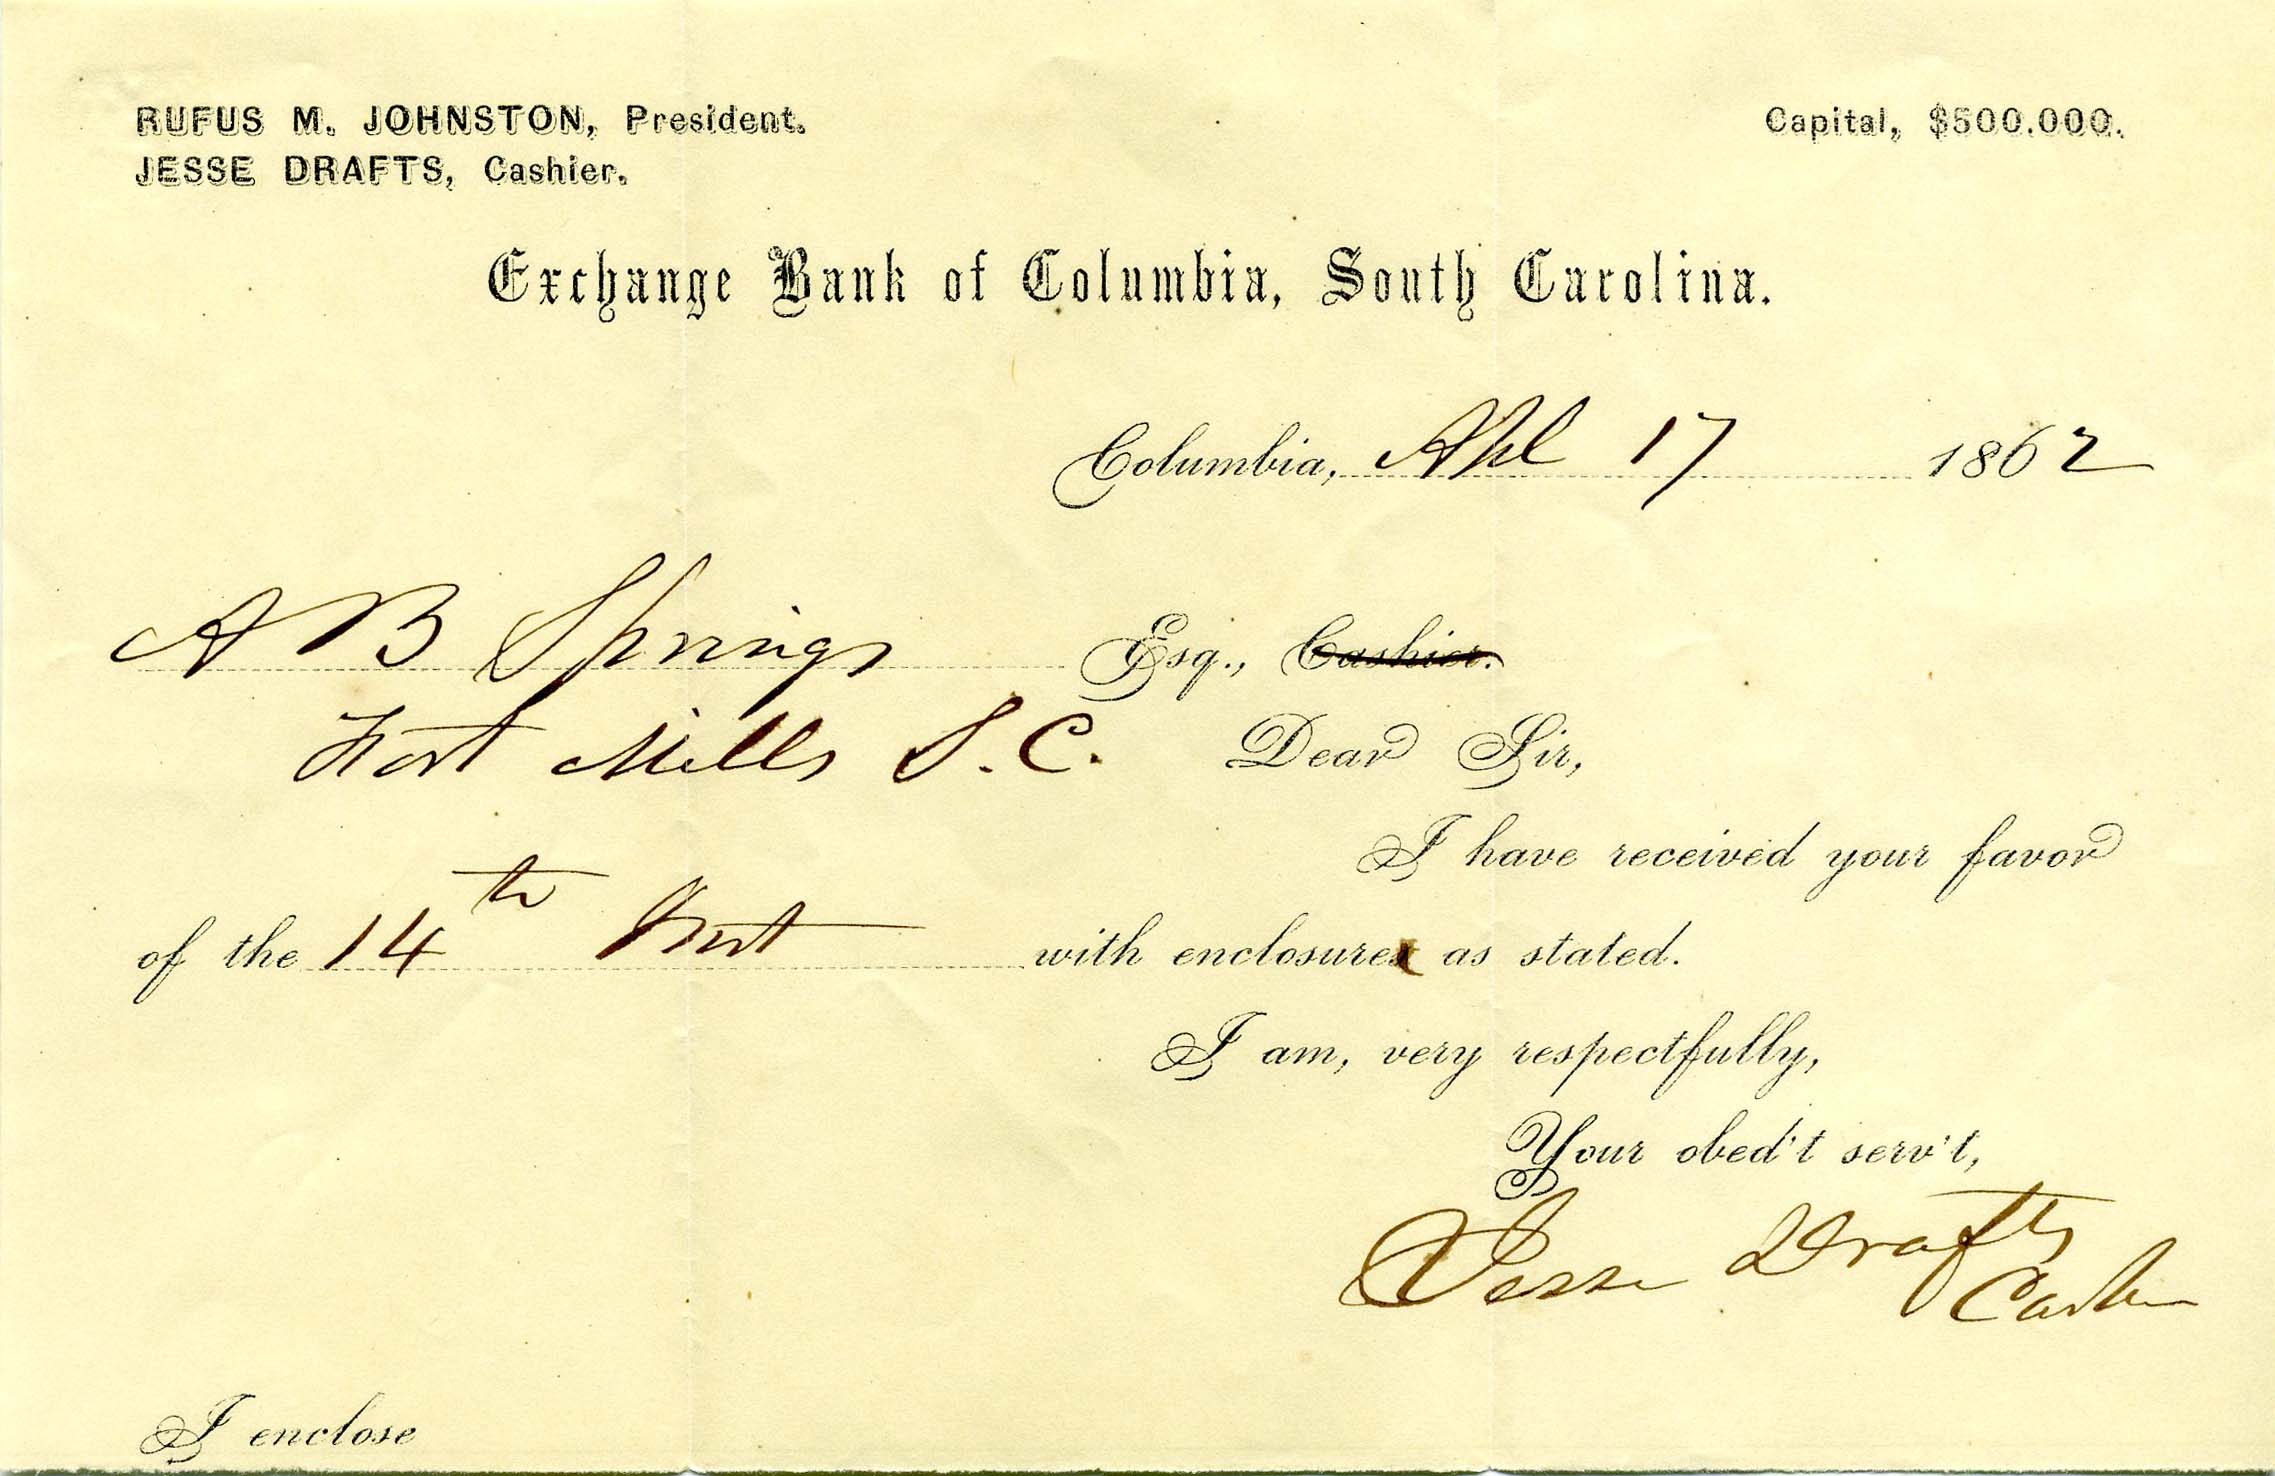 RUFUS M. JOHNSTON, President.
Capital, $500.000.
JESSE DRAFTS, Cashier.
Exchange Bank of Columbia, South Carolina.
Columbia, Apl 17 1862
A B Springs Esq., Cashier.
Fort Mills S.C. Dear Sir,
I have received your favor
of the 14th Inst with enclosures as stated.
I am, very respectfully,
Your obed't serv't,
Jesse Drafts
Cashr
I enclose